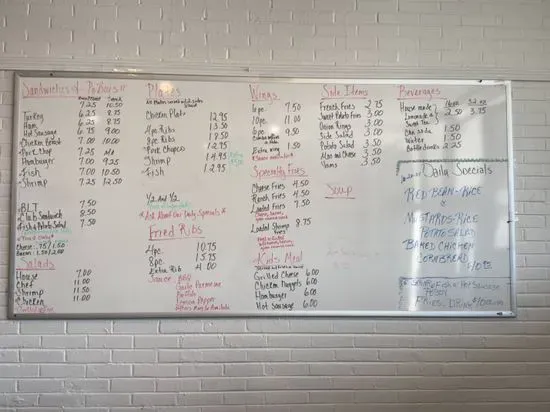 Sandwiches & Po Boys
7.25 10.50
Turkey 6.25 8.75
Ham 6.25 8.75
Hot Sausage 6.75 9.00
Chicken Breast 7.00 10.00
Pork Chop 7.25 NA
Hamburger 7.00 9.25
Fish 7.00 10.50
Shrimp 7.25 12.50
BLT 7.50
Club Sandwich 8.50
Fish & Potato Salad 7.50
Cheese .75/1.50
Bacon 1.50/2.00
Salads
House 7.00
Chef 11.00
Shrimp 11.50
Chicken 11.00
Plates
Chicken Plate 12.95
4pc Ribs 13.50
8pc Ribs 18.50
Pork Chops 12.95
Shrimp 14.95
Fish 12.95
1/2 And 1/2
* Ask About Our Daily Specials *
Fried Ribs
4pc. 10.75
8pc. 15.75
Extra Rib 4.00
Sauce: BBQ
Garlic Parmesan
Buffalo
Lemon Pepper
Wings
6pc. 7.50
10pc. 11.00
6pc 9.50
Extra wing 1.50
Specialty Fries
Cheese Fries 4.50
Ranch Fries 4.50
Loaded Fries 7.50
Loaded Shrimp Fries 8.75
Kids Meal
Grilled Cheese 6.00
Chicken Nuggets 6.00
Hamburger 6.00
Hot Sausage 6.00
Side Items
French Fries 2.75
Sweet Potato Fries 3.00
Onion Rings 3.00
Side Salad 3.00
Potato Salad 3.50
Mac and Cheese 3.50
Yams 3.50
Soup
Beverages
House made
Lemonade & 2.50 3.75
Sweet Tea
Can soda 1.50
Water 1.50
Bottled drinks 2.25
Daily Specials
RED BEAN-RICE
MUSTARDS-RICE
POTATO SALAD
BAKED CHICKEN
CORNBREAD